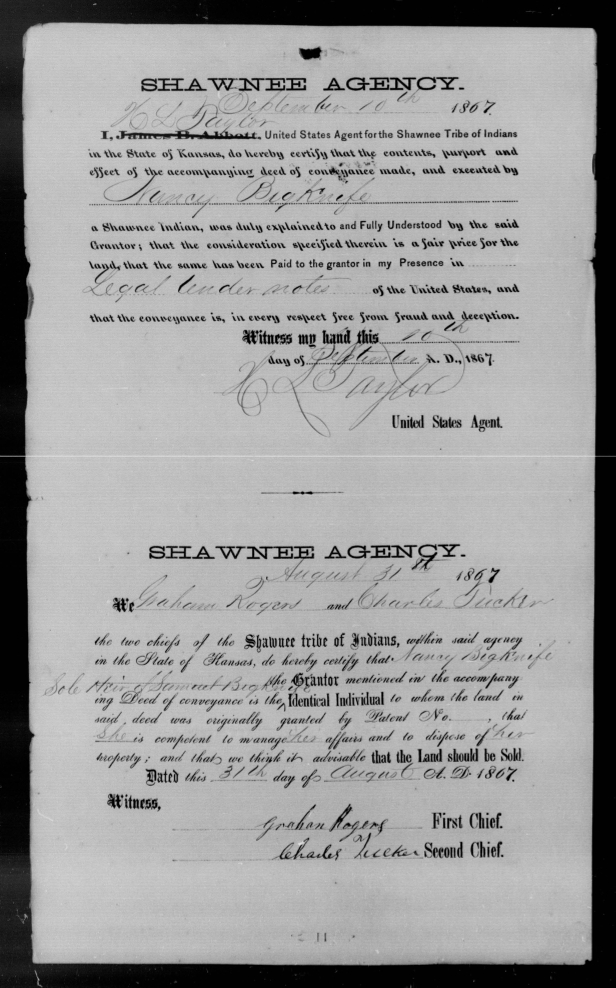 SHAWNEE AGENCY.
September 10th 1867.
H L Taylor
I, James B. Abbott, United States Agent for the Shawnee Tribe of Indians
in the State of Kansas, do hereby certify that the contents, purport and
effect of the accompanying deed of conveyance made, and executed by
Nancy Bigknife
a Shawnee Indian, was duly explained to and Fully Understood by the said
Grantor; that the consideration specified therein is a fair price for the
land, that the same has been Paid to the grantor in my Presence in
Legal tender notes of the United States, and
that the conveyance is, in every respect free from fraud and deception.
Witness my hand this 10th
day of September A. D., 1867.
H L Taylor
United States Agent.
SHAWNEE AGENCY.
August 31st 1867
We Graham Rogers and Charles Tucker
the two chiefs of the Shawnee tribe of Indians, within said agency
in the State of Kansas, do hereby certify that Nancy Bigknife
Sole Heir of Samuel Bigknife the Grantor mentioned in the accompany
ing Deed of conveyance is the Identical Individual to whom the land in
said deed was originally granted by Patent No. , that
She is competent to manage her affairs and to dispose of her
property; and that we think it advisable that the Land should be Sold.
Dated this 31th day of August A. D. 1867.
Witness,
Graham Rogers First Chief.
Charles Tucker Second Chief.
11